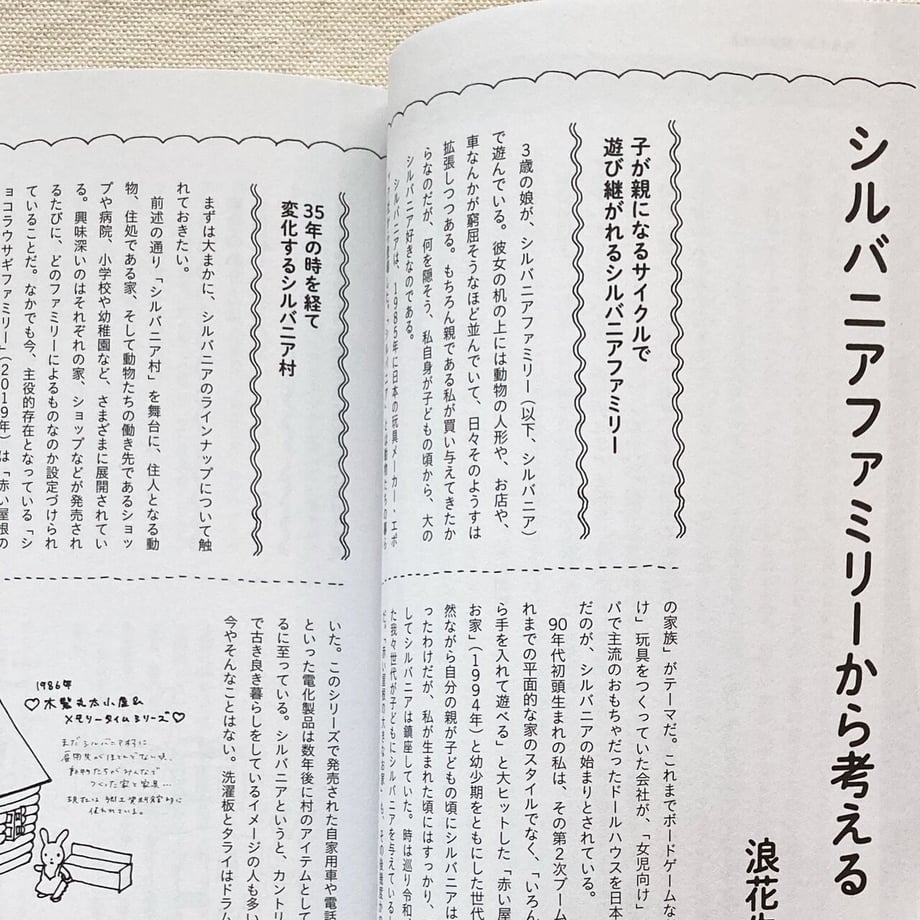 シルバニアファミリーから考える
浪花
子が親になるサイクルで
遊び継がれるシルバニアファミリー
3歳の娘が、シルバニアファミリー（以下、シルバニア）
で遊んでいる。彼女の机の上には動物の人形や、お店や、
車なんかが窮屈そうなほど並んでいて、日々そのようすは
拡張しつつある。もちろん親である私が買い与えてきたか
らなのだが、何を隠そう、私自身が子どもの頃から、大の
シルバニア好きなのである。
シルバニアは、1985年に日本の玩具メーカー・エポ
の家族」がテーマだ。これまでボードゲームな
け」玩具をつくっていた会社が、「女児向け」
パで主流のおもちゃだったドールハウスを日本
だのが、シルバニアの始まりとされている。
90年代初頭生まれの私は、その第2次ブーム
れまでの平面的な家のスタイルでなく、「いろん
ら手を入れて遊べる」と大ヒットした「赤い屋
お家」（1994年）と幼少期をともにした世代
然ながら自分の親が子どもの頃にシルバニアは
ったわけだが、私が生まれた頃にはすっかり、
してシルバニアは鎮座していた。時は巡り令和、
た我々世代が子どもにシルバニアを与えている
35年の時を経て
変化するシルバニア村
まずは大まかに、シルバニアのラインナップについて触
れておきたい。
前述の通り「シルバニア村」を舞台に、住人となる動
物、住処である家、そして動物たちの働き先であるショッ
プや病院、小学校や幼稚園など、さまざまに展開されてい
る。興味深いのはそれぞれの家、ショップなどが発売され
るたびに、どのファミリーによるものなのか設定づけられ
ていることだ。なかでも今、主役的存在となっている「シ
ョコラウサギファミリー」（2019年）は「赤い屋根の
いた。このシリーズで発売された自家用車や電話
といった電化製品は数年後に村のアイテムとして
るに至っている。シルバニアというと、カントリ
で古き良き暮らしをしているイメージの人も多い
今やそんなことはない。洗濯板とタライはドラム
1986年
♡木製丸太小屋&
メモリータイムシリーズ♡
まだシルバニア村に